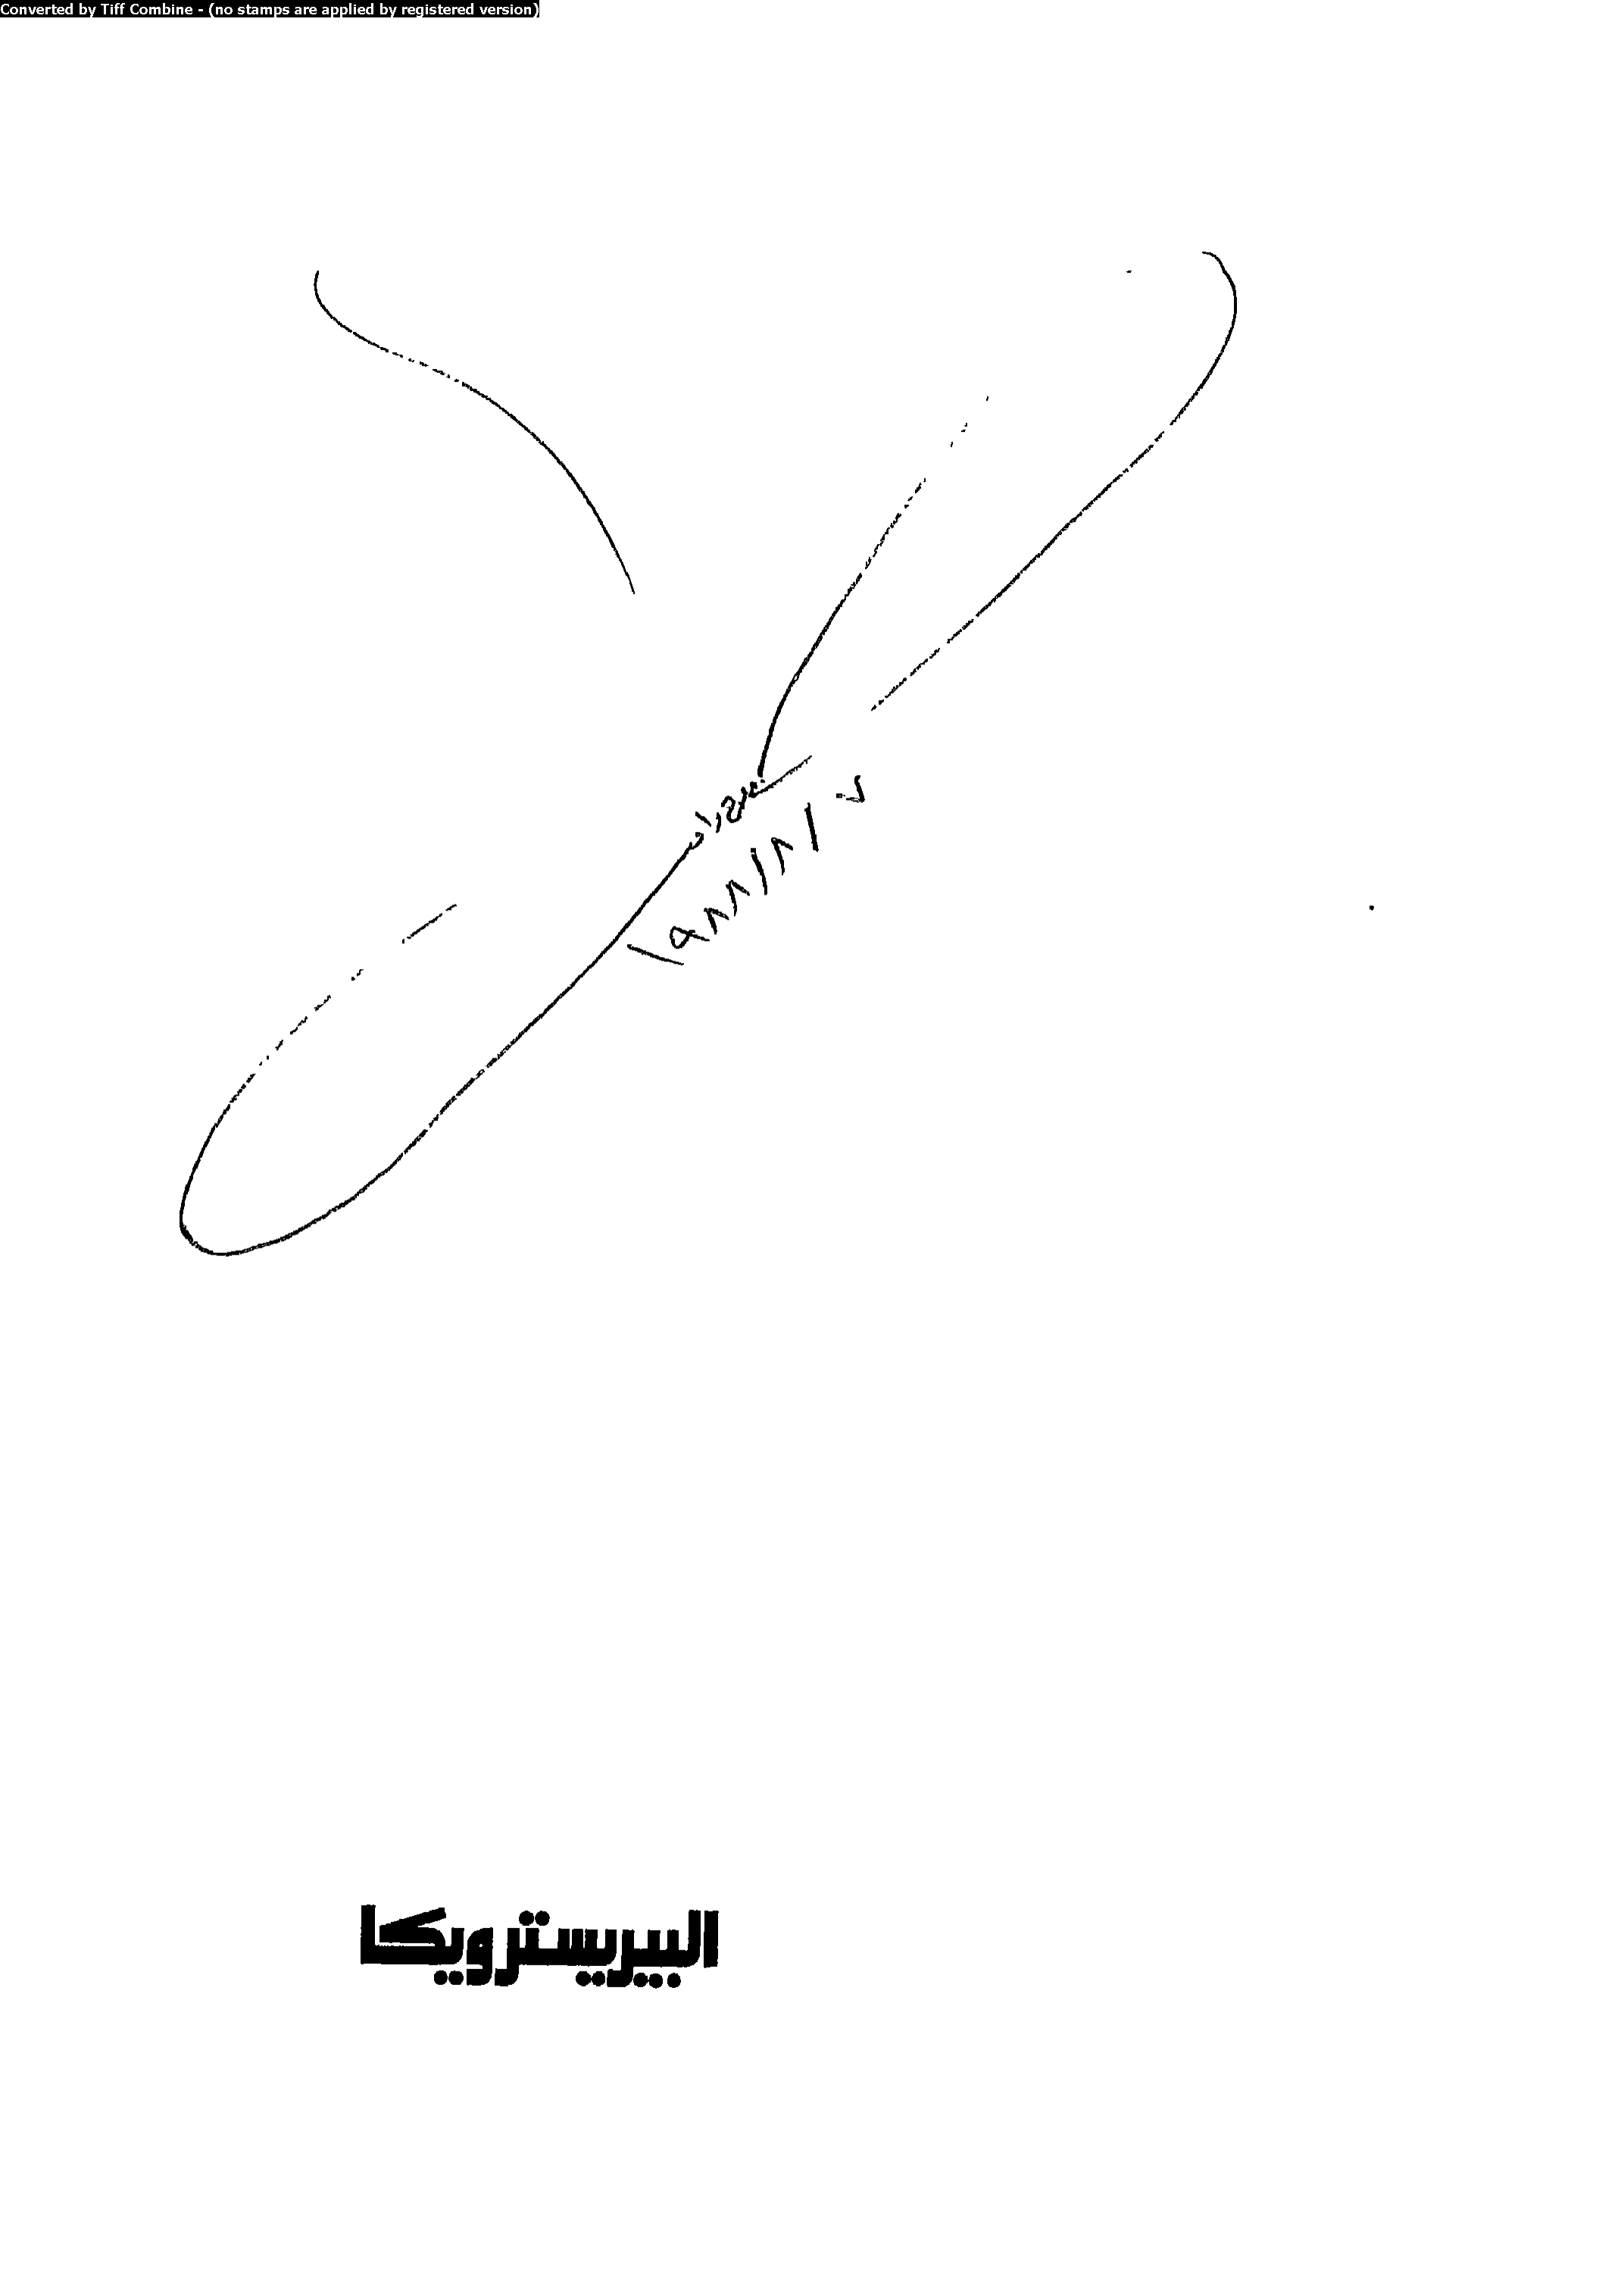 Converted by Tiff Combine - (no stamps are applied by registered version)
١٩٨٨/٨/٧
البيريسترويكا